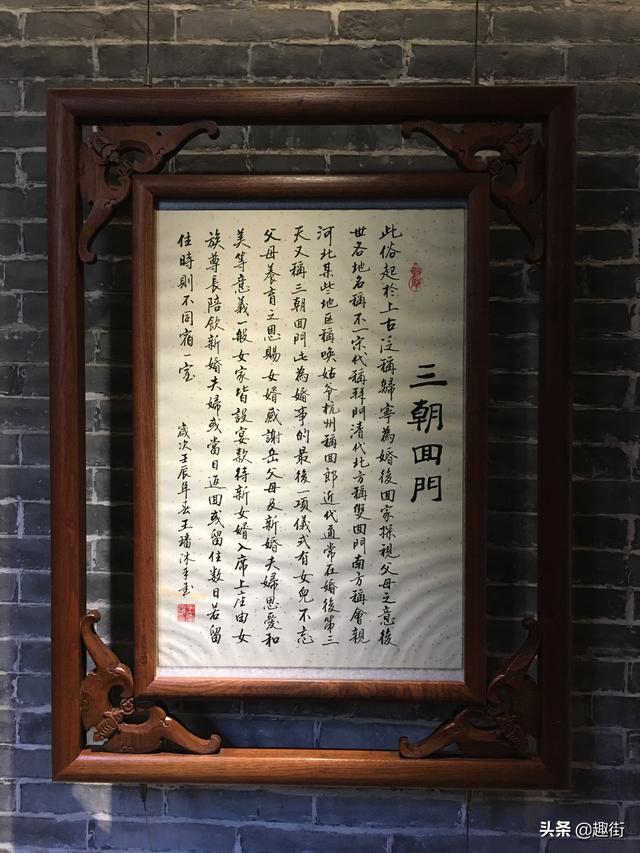 三朝囬門
此俗起於上古泛稱歸寧為婚後囬家探視父母之意後
世各地名稱不一宋代稱拜門清代北方稱雙囬門南方稱會親
河北某些地区稱喚姑爷杭州稱囬郎近代通常在婚後第三
天又稱三朝囬門此為婚事的最後一項儀式有女兒不忘
父母養育之恩賜女婿感謝岳父母及新婚夫婦恩愛和
美等意義一般女家皆設宴款待新女婿入席上座由女
族尊長陪飲新婚夫婦或當日返囬或留住数日若留
住時則不同宿一室
歲次壬辰年春王璠沐手書
头条 @趣街